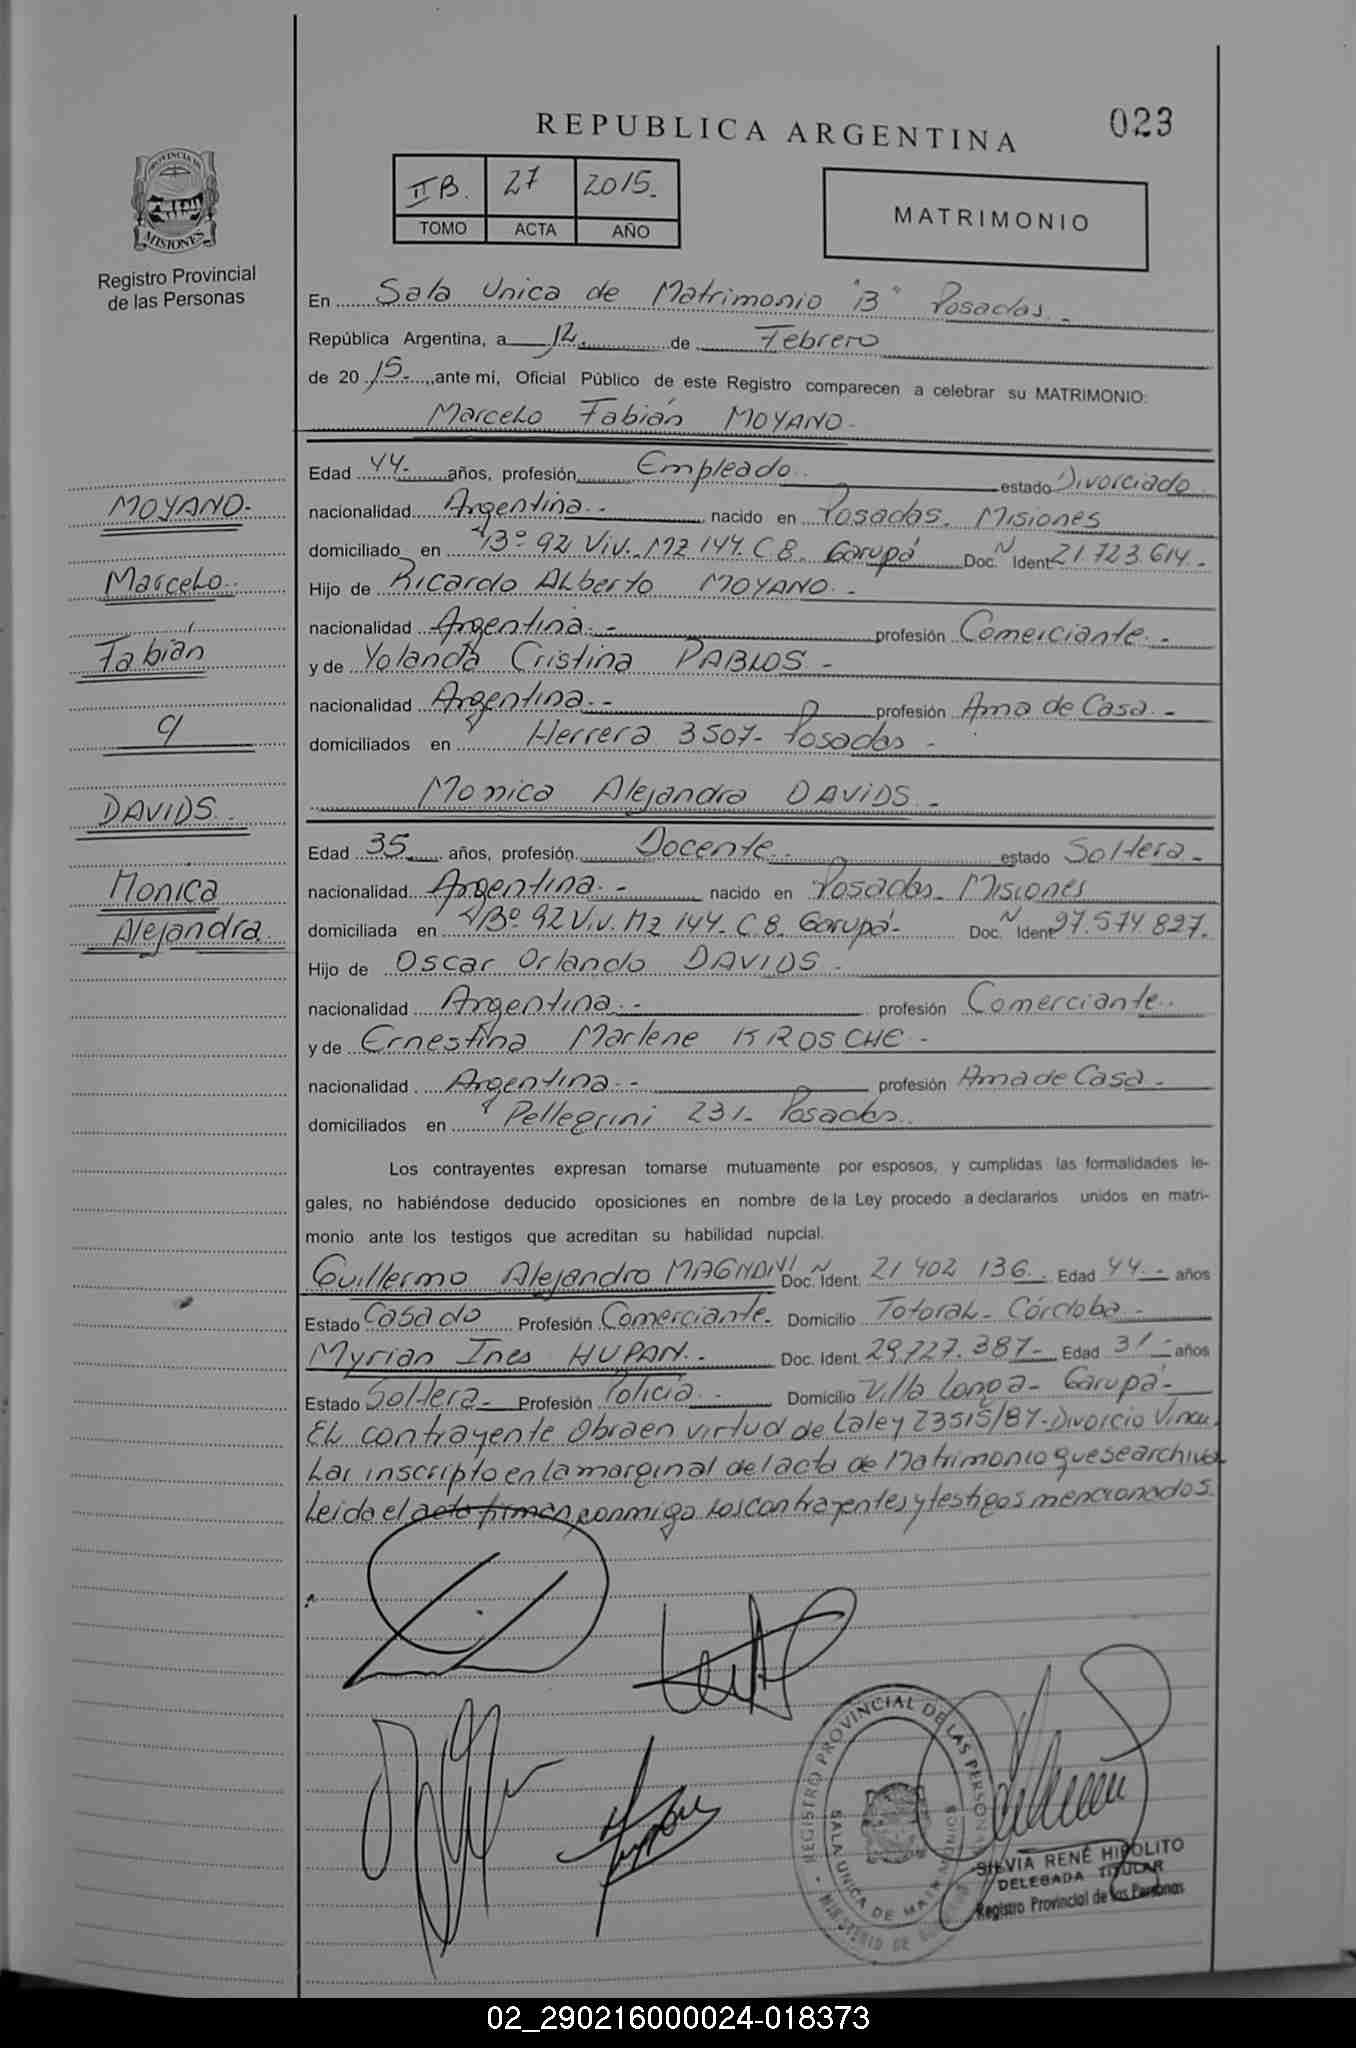 023
REPUBLICA ARGENTINA
PROVINCIA DE
MISIONES
Registro Provincial
de las Personas
II B. 27 2015.-
TOMO ACTA AÑO
MATRIMONIO
En Sala Unica de Matrimonio "B" Posadas.-
República Argentina, a 12 de Febrero
de 20 15.- ,ante mí, Oficial Público de este Registro comparecen a celebrar su MATRIMONIO:
Marcelo Fabián MOYANO.-
Edad 44.- años, profesión Empleado.- estado Divorciado
MOYANO.-
nacionalidad Argentina.- nacido en Posadas. Misiones
domiciliado en Bº 92 Viv. Mz 144. C 8. Garupá Doc. N Ident 21.723.614.-
Marcelo
Hijo de Ricardo Alberto MOYANO.-
nacionalidad Argentina.- profesión Comerciante.-
Fabián
y de Yolanda Cristina PABLOS.-
nacionalidad Argentina.- profesión Ama de Casa.-
domiciliados en Herrera 3507- Posadas.-
Monica Alejandra DAVIDS.-
DAVIDS.
Edad 35.- años, profesión Docente.- estado Soltera.-
Monica
nacionalidad Argentina.- nacido en Posadas. Misiones
Alejandra
domiciliada en Bº 92 Viv. Mz 144. C 8. Garupá- Doc. N Ident 27.574.827.
Hijo de Oscar Orlando DAVIDS.-
nacionalidad Argentina.- profesión Comerciante.-
y de Ernestina Marlene KROSCHE.-
nacionalidad Argentina.- profesión Ama de Casa.-
domiciliados en Pellegrini 231- Posadas.
Los contrayentes expresan tomarse mutuamente por esposos, y cumplidas las formalidades le-
gales, no habiéndose deducido oposiciones en nombre de la Ley procedo a declararlos unidos en matri-
monio ante los testigos que acreditan su habilidad nupcial.
Guillermo Alejandro Doc. N Ident. 21 402 136.- Edad 44.- años
Estado Casado Profesión Comerciante. Domicilio Totoral- Córdoba.-
Myrian Ines HUPAN.- Doc. Ident. 29.727.387- Edad 31- años
Estado Soltera.- Profesión Policía.- Domicilio Villa Longa- Garupá-
El contrayente Obra en virtud de La ley 23515/87- Divorcio Vincu-
Lar inscripto en la marginal del acta de Matrimonio que se archiva
Leida el acta firman conmigo Los contrayentes y testigos mencionados.
REGISTRO PROVINCIAL DE LAS PERSONAS
SALA UNICA DE MATRIMONIOS
MINISTERIO DE
SILVIA RENÉ HIPOLITO
DELEGADA TITULAR
Registro Provincial de las Personas
02_290216000024-018373